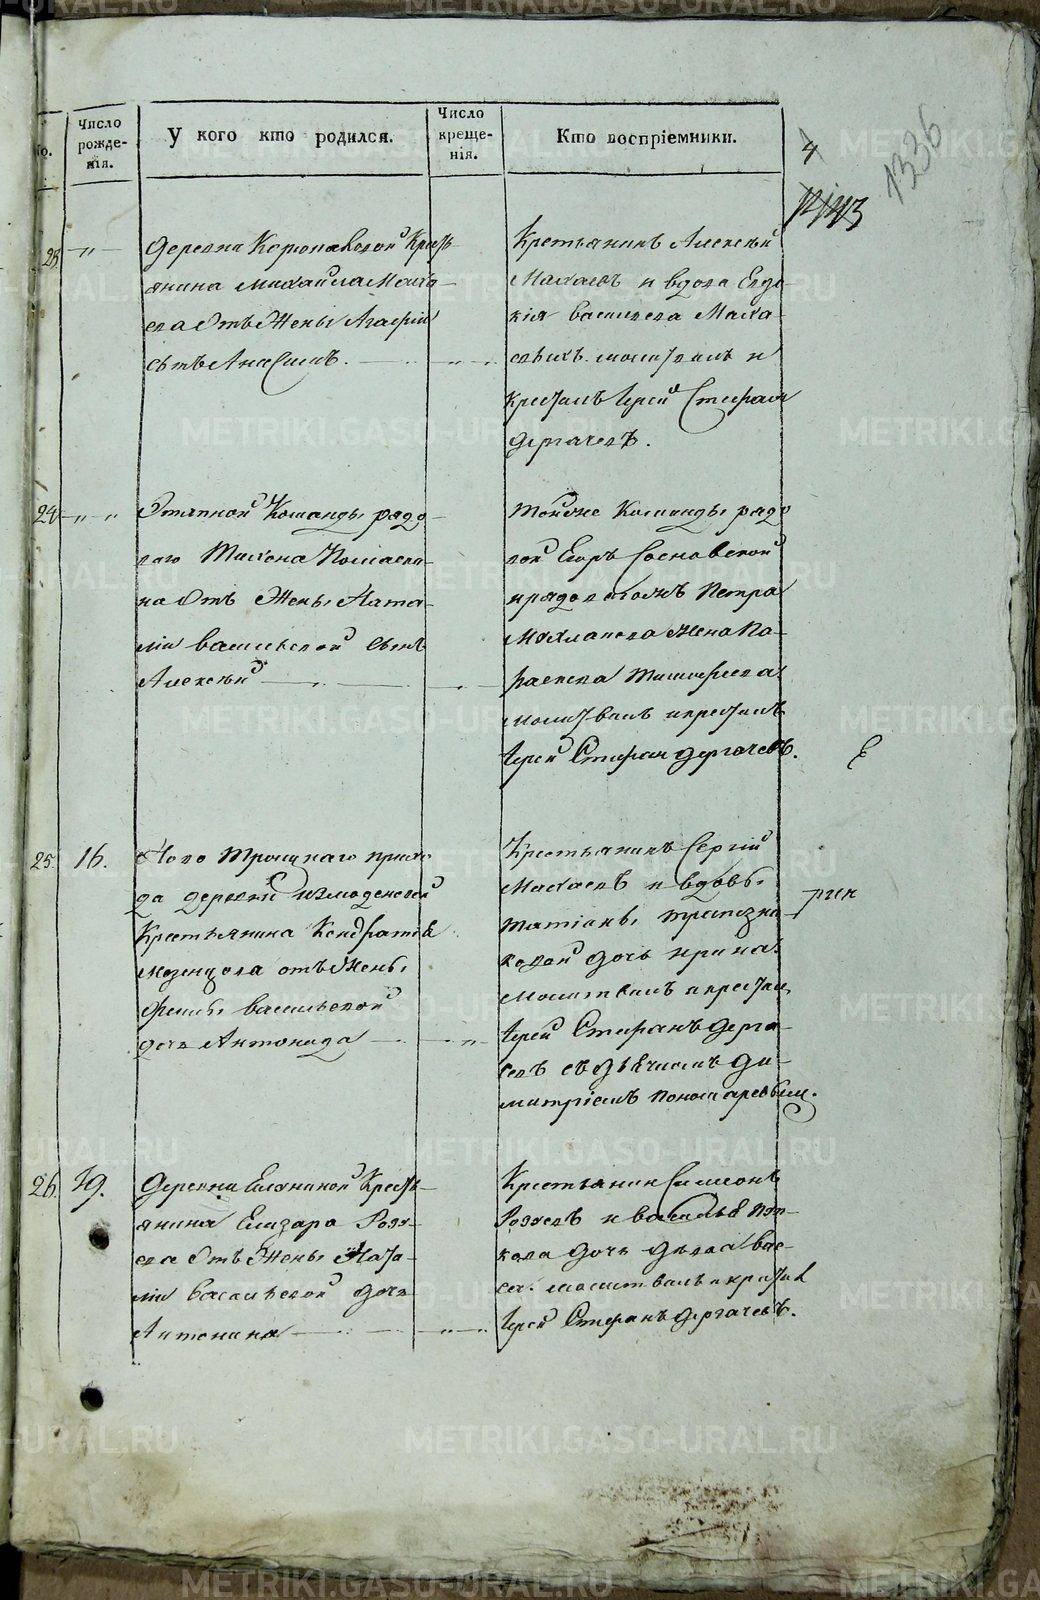 Число рожде-нія.
У кого кто родился.
Число креще-нія.
Кто воспріемники.
4
1336
23
Деревни Крестъ
янина Михайла Маха
ева отъ Жены Агафіи
сынъ Анисимъ.
Крестьянинъ Алексѣй
Махаевъ и вдова Евдо
кія Васильева Маха
евыхъ. молитвилъ и
крестилъ Іерей Стефан
Дергачевъ.
24
Этапной Команды рядо
ваго Тихона
на отъ Жены Ната-
ліи Васильевой сынъ
Алексѣй
Тойже Команды рядо
вой Егоръ Сосновской
и рядоваго Петра
жена Па-
раскева Тимофеева
молитвилъ и крестилъ
Іерей Стефан Дергачевъ.
25.
16.
Ново Троицкаго прихо
да деревни Измоденовой
Крестьянина Кондратія
отъ Жены
Васильевой
дочь Антонида
Крестьянинъ Сергій
Махаевъ и вдовы
Татіаны Трапезни
ковой дочь Ирина.
молитвилъ и крестил
Іерей Стефанъ Дерга-
чевъ съ дьячкомъ Ди-
митріемъ Пономаревым.
26.
19.
Деревни Еланиной Кресть
янина Елизара
ева отъ Жены Ната-
ліи Васильевой дочь
Антонина
Крестьянин Симеонъ
и Василья
кова дочь
молитвилъ и крестил
Іерей Стефанъ Дергачевъ.
METRIKI.GASO-URAL.RU